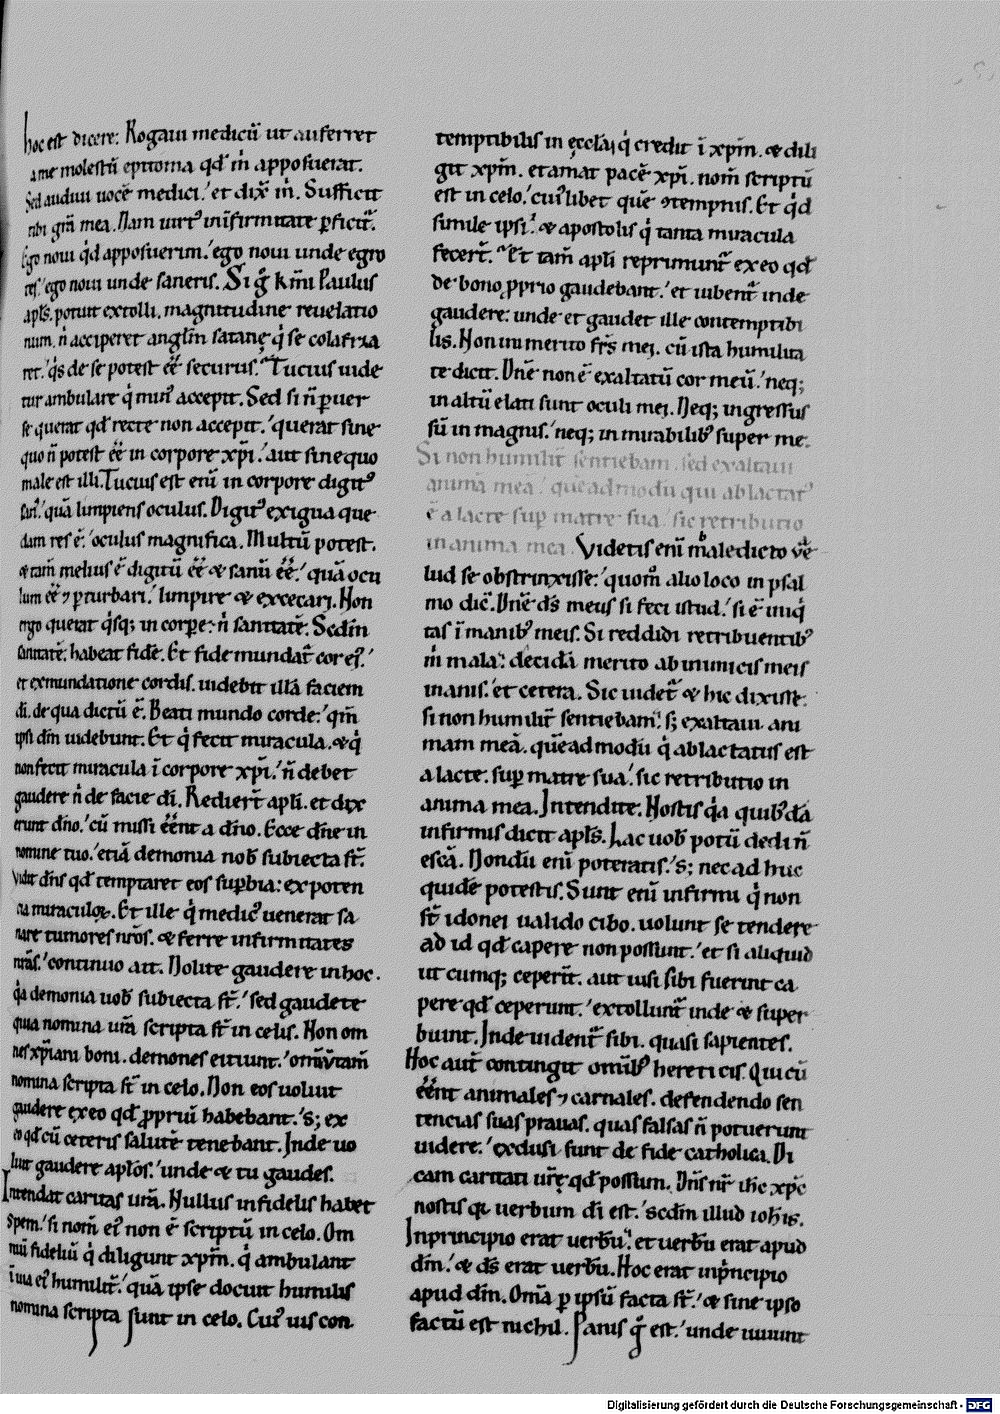 hoc est dicere: Rogaui medicū ut auferret
a me molestū epitoma qd m̄ apposuerat.
Sed audiui uocē medici. et dix̄ m̄. Sufficit
tibi gr̄a mea. Nam uirtꝰ in infirmitate ꝑficit̄.
Ego noui qd apposuerim. ego noui unde egro
tes. ego noui unde saneris. Si g̊ km̄i Paulus
apl̄s. potuit extolli. magnitudine reuelatio
num. n̄ acciperet angl̄m satanę q̇ se colafiza
ret. q̇s de se potest ēē securus. Tucius uide
tur ambulare q̇ minꝰ accepit. Sed si n̄ ꝑuer
se querat qd recte non accepit. querat sine
quo n̄ potest ēē in corpore xp̄i. aut sine quo
male est illi. Tucius est enī in corpore digitꝰ
sanꝰ. quā lumpiens oculus. Digitꝰ exigua que
dam res ē. oculus magnifica. Multū potest.
& tam̄ melius ē digitū ēē & sanū ēē. quā ocu
lum ēē ⁊ ꝑturbari. lumpire & excecari. Non
ergo querat q̇sq; in corpꝑe: n̄ sanitatē. Scdm̄
sanitatē. habeat fidē. Et fide mundat̄ cor eiꝰ.
et ex mundatione cordis. uidebit illā faciem
dī. de qua dictū ē. Beati mundo corde. qm̄
ipsi dm̄ uidebunt. Et q̇ fecit miracula. & q̇
non fecit miracula ī corpore xp̄i. n̄ debet
gaudere n̄ de facie dī. Redier̄t apl̄i. et dix
erunt dn̄o. cū missi ēēnt a dn̄o. Ecce dn̄e in
nomine tuo. etiā demonia nob̄ subiecta st̄.
Vidit dn̄s qd temptaret eos suꝑbia: ex poten
tia miraculoꝝ. Et ille q̇ medicꝰ uenerat sa
nare tumores nr̄os. & ferre infirmitates
nr̄as. continuo ait. Nolite gaudere in hoc.
q̇a demonia uob̄ subiecta st̄. sed gaudete
quia nomina ur̄a scripta st̄ in celis. Non om
nes xp̄iani boni. demones eiciunt. omīū tam̄
nomina scripta st̄ in celo. Non eos uoluit
gaudere ex eo qd ꝓpriū habebant. s; ex
eo qd cū ceteris salutē tenebant. Inde uo
luit gaudere aplōs. unde & tu gaudes.
Intendat caritas ur̄a. Nullus infidelis habet
spem. si nom̄ eiꝰ non ē scriptū in celo. Om
niū fideliū q̇ diligunt xpm̄. q̇ ambulant
ī uia eiꝰ humilit̄. quā ipse docuit humilis
nomina scripta sunt in celo. Cuiꝰ uis con
temptibilis in ęccl̄a. q̇ credit ī xpm̄. & dili
git xpm̄. et amat pacē xp̄i. nom̄ scriptū
est in celo. cuiꝰ libet quē ꝯtempnis. Et q̇d
simile ipsi. & apostolis q̇ tanta miracula
fecer̄t. Et tam̄ apl̄i reprimunt̄ ex eo qd
de bono ꝓprio gaudebant. et iubent̄ inde
gaudere: unde et gaudet ille contemptibi
lis. Non inmerito fr̄s mei. cū ista humilita
te dicit. Dn̄e non ē exaltatū cor meū. neq;
in altū elati sunt oculi mei. Neq; ingressus
sū in magnis. neq; in mirabilibꝰ super me.
Si non humilit̄ sentiebam. sed exaltaui
anima mea. quēadmodū qui ablactatꝰ
ē a lacte suꝑ matre sua. sic retributio
in anima mea. Videtis enī maledicto ue
lud se obstrinxisse. quom̊ alio loco in psal
mo dic̄. Dn̄e ds̄ meus si feci istud. si ē iniq̇
tas ī manibꝰ meis. Si reddidi retribuentibꝰ
m̄ mala. decidā merito ab inimicis meis
inanis. et cetera. Sic uidet̄ & hic dixisse.
si non humilit̄ sentiebam. s; exaltaui ani
mam meā. quēadmodū q̇ ablactatus est
a lacte. suꝑ matre sua. sic retributio in
anima mea. Intendite. Nostis q̇a quibꝰdā
infirmis dicit apl̄s. Lac uob̄ potū dedi n̄
escā. Nondū enī poteratis. s; nec ad huc
quidē potestis. Sunt enī infirmi q̇ non
st̄ idonei ualido cibo. uolunt se tendere
ad id qd capere non possunt. et si aliquid
ut cumq; ceper̄t. aut uisi sibi fuerint ca
pere qd ceperunt. extollunt̄ inde & super
biunt. Inde uident̄ sibi. quasi sapientes.
Hoc aut̄ contingit omībꝰ hereticis. Qui cū
ēēnt animales ⁊ carnales. defendendo sen
tencias suas prauas. quas falsas n̄ potuerunt
uidere. exclusi sunt de fide catholica. Di
cam caritati ur̄ę qd possum. Dn̄s nr̄ ih̄c xp̄c
nostis qa uerbum dī est. scdm̄ illud ioh̄is.
In principio erat uerbū. et uerbū erat apud
dm̄. & ds̄ erat uerbū. Hoc erat inp̄ncipio
apud dm̄. Om̄a ꝑ ipsū facta st̄. & sine ipso
factū est nichil. Panis g̊ est. unde uiuunt
Digitalisierung gefördert durch die Deutsche Forschungsgemeinschaft - DFG